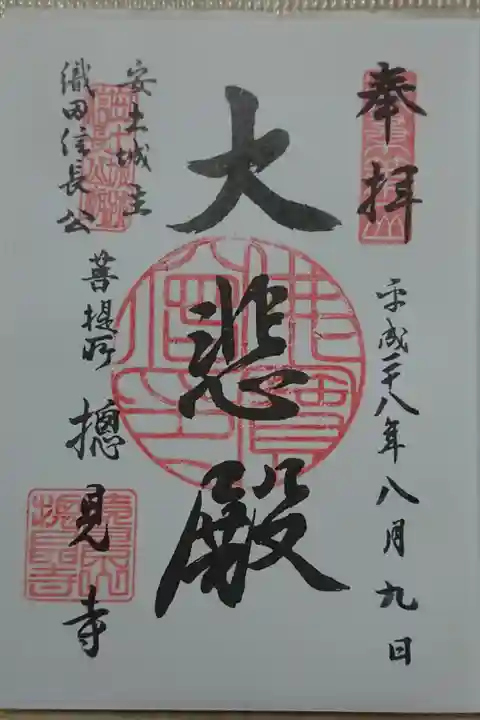 奉拝
平成二十八年八月九日
大悲殿
安土城主
織田信長公
菩提所 摠見寺